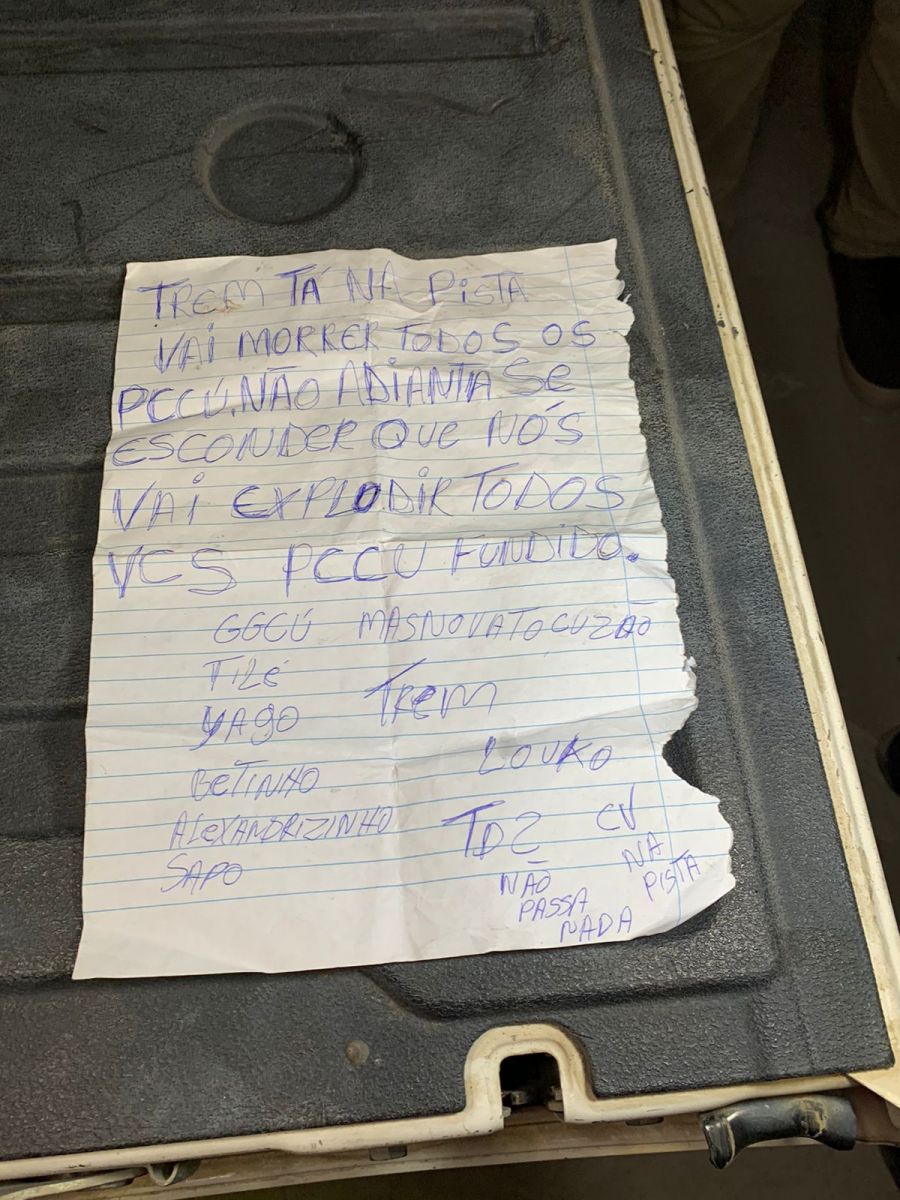 TREM TÁ NA PISTA
VAI MORRER TODOS OS
PCCÚ. NÃO ADIANTA SE
ESCONDER QUE NÓS
VAI EXPLODIR TODOS
VCS PCCU FUNDIDO.
GGCÚ MASNOVATOCUZÃO
TILÉ
YAGO TREM
LOUKO
BETINHO
ALEXANDRIZINHO
SAPO
TD2 CV
NÃO NA
PASSA PISTA
NADA